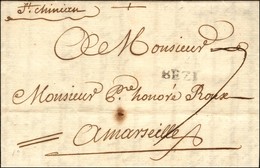 St. chinien
A Monsieur
BEZI
Monsieur Pre honoré Roux
A marseille